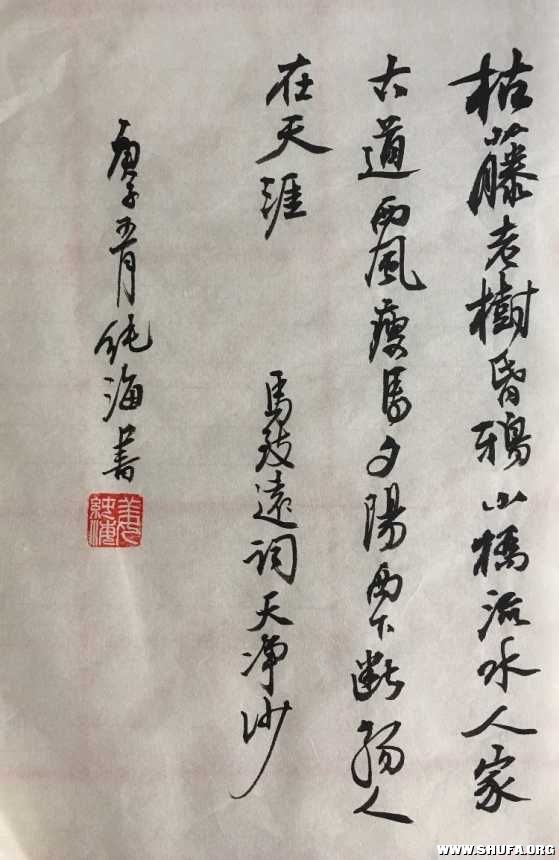 枯藤老樹昏鴉小橋流水人家
古道西風瘦馬夕陽西下斷腸人
在天涯
馬致遠詞天净沙
庚子五月純海書
姜氏純海
WWW.SHUFA.ORG